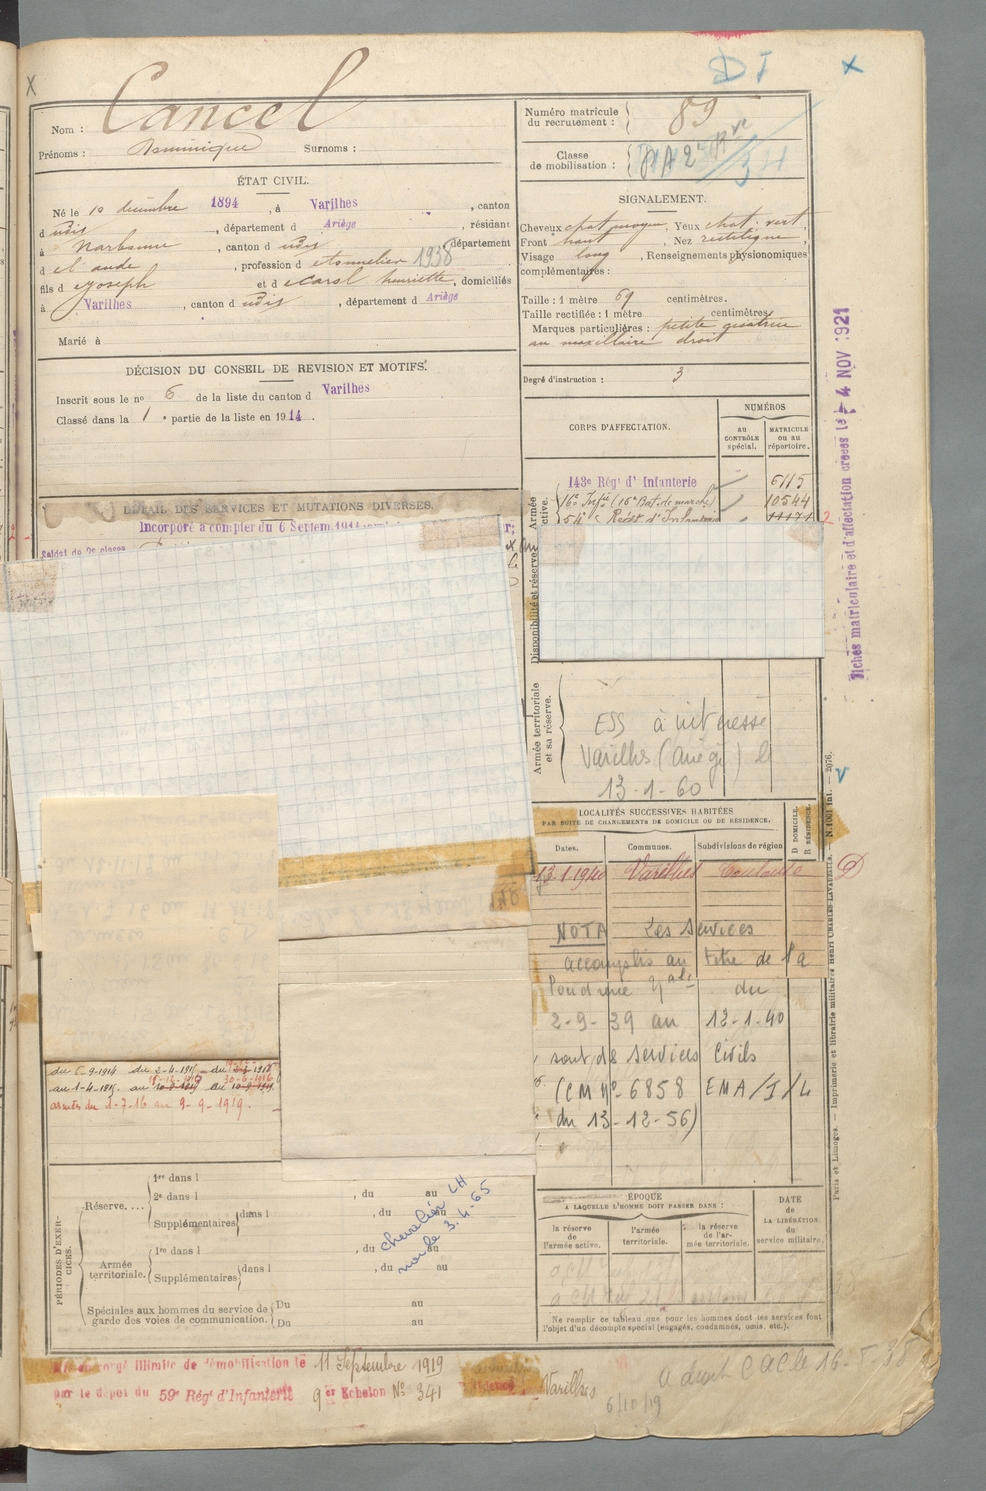 DI
Cancel
Nom :
Prénoms : Dominique Surnoms :
Numéro matricule du recrutement : 89
Classe de mobilisation :
ÉTAT CIVIL.
Né le 10 décembre 1894, à Varilhes, canton
d udis, département d Ariège, résidant
à Narbonne, canton d udis, département
d el aude, profession d tonnelier 1938
fils d Joseph et d Carol henriette, domiciliés
à Varilhes, canton d udis, département d Ariège
Marié à
SIGNALEMENT.
Cheveux chat. moyen, Yeux chat. vert,
Front haut, Nez rectiligne,
Visage long, Renseignements physionomiques
complémentaires :
Taille : 1 mètre 69 centimètres.
Taille rectifiée : 1 mètre centimètres.
Marques particulières : petite cicatrice
au maxillaire droit
Degré d'instruction : 3
DÉCISION DU CONSEIL DE REVISION ET MOTIFS.
Inscrit sous le no 6 de la liste du canton d Varilhes
Classé dans la 1e partie de la liste en 1914.
CORPS D'AFFECTATION.
NUMÉROS
AU CONTRÔLE spécial.
MATRICULE OU AU répertoire.
Armée active.
143e Régt d'Infanterie 6115
16e Infie (16e Bat. de marche) 10544
54e Régt d'Infanterie 11171
Disponibilité et réserve
DÉTAIL DES SERVICES ET MUTATIONS DIVERSES.
Incorporé à compter du 6 Septem. 1914
Soldat de 2e classe
fiches matriculaire et d'affectation créées le 4 NOV 1921
Armée territoriale et sa réserve.
ESS à intéressé
Varilhes (Ariège) le
13-1-60
LOCALITÉS SUCCESSIVES HABITÉES
PAR SUITE DE CHANGEMENTS DE DOMICILE OU DE RÉSIDENCE.
Dates. Communes. Subdivisions de région
D DOMICILE.
R RÉSIDENCE.
13.1.1940 Varilhes Toulouse D
NOTA Les Services
accomplis au titre de la
Poudrerie Nale du
2-9-39 au 12-1-40
sont des services Civils
(CM n° 6858 EMA/I/L
du 13-12-56)
du 6-9-1914 du 2-4-1915
au 1-4-1915.
armées du 1-7-16 au 9-9-1919.
PÉRIODES D'EXERCICES.
Réserve.... 1re dans l
2e dans l , du au
Supplémentaires dans l , du au
Armée territoriale. 1re dans l , du au
Supplémentaires dans l , du au
Spéciales aux hommes du service de garde des voies de communication. Du au
Du au
chevalier LH
3.4.65
ÉPOQUE
A LAQUELLE L'HOMME DOIT PASSER DANS :
la réserve de l'armée active.
l'armée territoriale.
la réserve de l'armée territoriale.
DATE de LA LIBÉRATION du service militaire.
Ne remplir ce tableau que pour les hommes dont les services font
l'objet d'un décompte spécial (engagés, condamnés, omis, etc.).
Paris et Limoges. — Imprimerie et librairie militaires Henri CHARLES-LAVAUZELLE.
congé illimité de démobilisation le 11 Septembre 1919
par le dépot du 59e Régt d'Infanterie 9er Echelon No 341
Varilhes
6/10/19